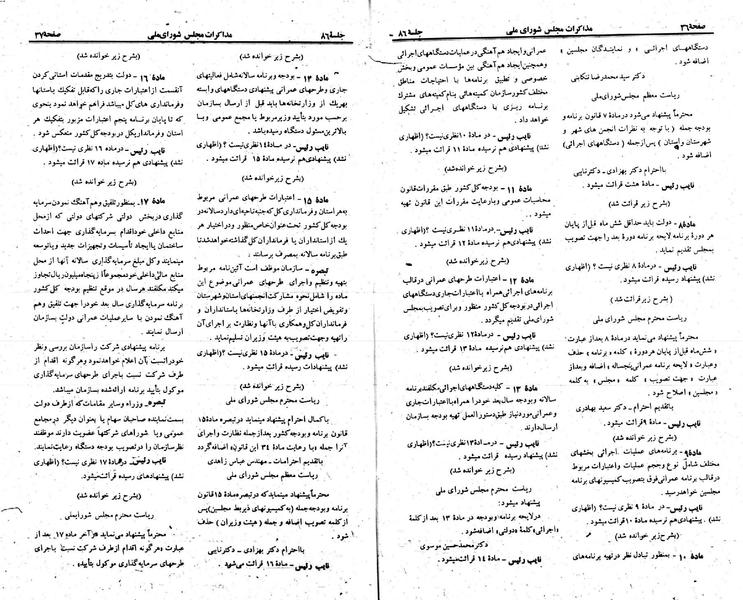 صفحه ۳۶ مذاکرات مجلس شورای ملی جلسه ۸۶
دستگاههای اجرائی » و نمایندگان مجلسین »
اضافه شود .
دکتر سید محمد رضا تنکابنی
ریاست معظم مجلس شورای ملی
محترماً پیشنهاد میشود در ماده ۷ قانون برنامه و
بودجه جمله ( با توجه به نظرات انجمن های شهر و
شهرستان و استان ) پس از جمله ( دستگاههای اجرائی )
اضافه شود .
با احترام دکتر بهزادی - دکتر نایبی
نایب رئیس - ماده هشت قرائت میشود .
(بشرح زیر قرائت شد)
ماده ۸ - دولت باید حداقل شش ماه قبل از پایان
هر دوره برنامه لایحه برنامه دوره بعد را جهت تصویب
مجلس تقدیم نماید .
نایب رئیس - در ماده ۸ نظری نیست ؟ (اظهاری
نشد) پیشنهادات رسیده قرائت میشود .
(بشرح زیر قرائت شد)
ریاست محترم مجلس شورای ملی
محترماً پیشنهاد مینماید در ماده ۸ بعد از عبارت
« شش ماه قبل از پایان هر دوره » کلمه « برنامه » حذف
و عبارت « برنامه عمرانی پنجساله » اضافه و بعد از
عبارت « جهت تصویب » کلمه « مجلس » به کلمه
« مجلسین » اصلاح شود .
با تقدیم احترام - دکتر سعید بهادری
نایب رئیس - ماده ۹ قرائت میشود .
(بشرح زیر خوانده شد)
ماده ۹ - برنامه‌های عملیات اجرائی بخشهای
مختلف شامل نوع و حجم عملیات و اعتبارات مربوط
در قالب برنامه عمرانی فوق بتصویب کمیسیونهای برنامه
مجلسین خواهد رسید .
نایب رئیس - در ماده ۹ نظری نیست ؟ (اظهاری
نشد) پیشنهادی هم نرسیده ماده ۱۰ قرائت میشود .
(بشرح زیر خوانده شد)
ماده ۱۰ - بمنظور تبادل نظر در تهیه برنامه‌های
عمرانی و ایجاد هم آهنگی در عملیات دستگاههای اجرائی
و همچنین ایجاد هم آهنگی بین مؤسسات عمومی و بخش
خصوصی و تطبیق برنامه‌ها با احتیاجات مناطق
مختلف کشور سازمان کمیته هائی بنام کمیته های مشترک
برنامه ریزی با دستگاههای اجرائی تشکیل
خواهد داد .
نایب رئیس - در ماده ۱۰ نظری نیست؟ (اظهاری
نشد) پیشنهادی هم نرسیده ماده ۱۱ قرائت میشود .
(بشرح زیر خوانده شد)
ماده ۱۱ - بودجه کل کشور طبق مقررات قانون
محاسبات عمومی و با رعایت مقررات این قانون تهیه
میشود .
نایب رئیس - در ماده ۱۱ نظری نیست؟ (اظهاری
نشد) پیشنهادی هم نرسیده ماده ۱۲ قرائت میشود .
(بشرح زیر خوانده شد)
ماده ۱۲ - اعتبارات طرحهای عمرانی در قالب
برنامه های اجرائی همراه با اعتبارات جاری دستگاههای
اجرائی در بودجه کل کشور منظور و برای تصویب مجلس
شورای ملی تقدیم میگردد .
نایب رئیس - در ماده ۱۲ نظری نیست؟ (اظهاری
نشد) پیشنهادی هم نرسیده ماده ۱۳ قرائت میشود .
(بشرح زیر خوانده شد)
ماده ۱۳ - کلیه دستگاههای اجرائی مکلفند برنامه
سالانه و بودجه سال بعد خود را همراه با اعتبارات جاری
و عمرانی مورد نیاز طبق دستور العمل تهیه بودجه بسازمان
ارسال دارند .
نایب رئیس - در ماده ۱۳ نظری نیست؟ (اظهاری
نشد) پیشنهادات رسیده قرائت میشود .
(بشرح زیر خوانده شد)
ریاست محترم مجلس شورای ملی
پیشنهاد میشود:
در لایحه برنامه و بودجه در ماده ۱۳ بعد از کلمه
«اجرائی» کلمه «دولتی» اضافه شود .
دکتر محمد حسین موسوی
نایب رئیس - ماده ۱۴ قرائت میشود .
جلسه ۸۶ مذاکرات مجلس شورای ملی صفحه ۳۷
(بشرح زیر خوانده شد)
ماده ۱۴ - بودجه و برنامه سالانه شامل فعالیتهای
جاری و طرحهای عمرانی دستگاههای وابسته
بهر یک از وزارتخانه ها باید قبل از ارسال بسازمان
برحسب مورد بتأیید وزیر مربوط یا مجمع عمومی و یا
بالاترین مسئول دستگاه رسیده باشد .
نایب رئیس - در ماده ۱۴ نظری نیست؟ (اظهاری
نشد) پیشنهادی هم نرسیده ماده ۱۵ قرائت میشود .
(بشرح زیر خوانده شد)
ماده ۱۵ - اعتبارات طرحهای عمرانی مربوط
به هر استان و فرمانداری کل که جنبه ناحیه‌ای دارد سالانه در
بودجه کل کشور تحت عنوان خاص منظور و در اختیار هر
یک از استانداران یا فرمانداران کل گذاشته خواهد شد تا
طبق برنامه سالانه بمصرف برسانند .
تبصره - سازمان موظف است آئین نامه مربوط
بتهیه و تنظیم و اجرای طرحهای عمرانی موضوع این
ماده را شامل نحوه مشارکت انجمنهای استان و شهرستان
و تفویض اختیار از طرف وزارتخانه ها باستانداران و
فرمانداران کل و همکاری با آنها و نظارت بر اجرای آن
را تهیه و جهت تصویب به هیئت وزیران تسلیم نماید .
نایب رئیس - در ماده ۱۵ نظری نیست؟ (اظهاری
نشد) پیشنهادات رسیده قرائت میشود .
(بشرح زیر خوانده شد)
ریاست محترم مجلس شورای ملی
با کمال احترام پیشنهاد مینماید در تبصره ماده ۱۵
قانون برنامه و بودجه کشور بعد از جمله نظارت و اجرای
آنرا جمله (با رعایت ماده ۳۴ این قانون) اضافه گردد
با تقدیم احترامات - مهندس عباس زاهدی
ریاست معظم مجلس شورای ملی
محترماً پیشنهاد مینماید که در تبصره ماده ۱۵ قانون
برنامه و بودجه جمله (به کمیسیونهای ذیربط مجلسین) پس
از کلمه تصویب اضافه و جمله ( هیئت وزیران ) حذف
شود .
با احترام دکتر بهزادی - دکتر نایبی
نایب رئیس - ماده ۱۶ قرائت می‌شود .
(بشرح زیر خوانده شد)
ماده ۱۶ - دولت بتدریج مقدمات استانی کردن
آن قسمت از اعتبارات جاری را که قابل تفکیک باستانها
و فرمانداری های کل میباشد فراهم خواهد نمود بنحوی
که تا پایان برنامه پنجم اعتبارات مزبور بتفکیک هر
استان و فرمانداریکل در بودجه کل کشور منعکس شود .
نایب رئیس - در ماده ۱۶ نظری نیست؟ (اظهاری
نشد) پیشنهادی هم نرسیده ماده ۱۷ قرائت میشود .
(بشرح زیر خوانده شد)
ماده ۱۷ - بمنظور تلفیق و هم آهنگ نمودن سرمایه
گذاری در بخش دولتی شرکتهای دولتی که از محل
منابع داخلی خود اقدام بسرمایه گذاری جهت احداث
ساختمان یا ایجاد تأسیسات و تجهیزات جدید و یا توسعه
مینمایند و کل مبلغ سرمایه گذاری سالانه آنها از محل
منابع مالی داخلی خود مجموعاً از پنجاه میلیون ریال تجاوز
میکند مکلفند هر سال در موقع تنظیم بودجه کل کشور
برنامه سرمایه گذاری سال بعد خود را جهت تلفیق و هم
آهنگ نمودن با سایر عملیات عمرانی دولت بسازمان
ارسال نمایند .
برنامه پیشنهادی شرکت را سازمان بررسی و نظر
خود را نسبت به آن اعلام خواهد نمود و هر گونه اقدام از
طرف شرکت نسبت باجرای طرحهای سرمایه گذاری
موکول بتأیید برنامه ارائه شده بسازمان میباشد .
تبصره - وزراء و سایر مقامات که از طرف دولت
بسمت نماینده صاحبان سهام یا بعنوان دیگر در مجامع
عمومی و یا شوراهای شرکتها عضویت دارند موظفند
نظر سازمان را در تصویب بودجه دستگاه رعایت نمایند.
نایب رئیس - در ماده ۱۷ نظری نیست؟ (اظهاری
نشد) پیشنهادهای رسیده قرائت میشود .
(بشرح زیر خوانده شد)
ریاست محترم مجلس شورایملی
محترماً پیشنهاد می‌نماید که «در آخر ماده ۱۷ بعد از
عبارت و هر گونه اقدام از طرف شرکت نسبت باجرای
طرحهای سرمایه گذاری موکول بتأیید»